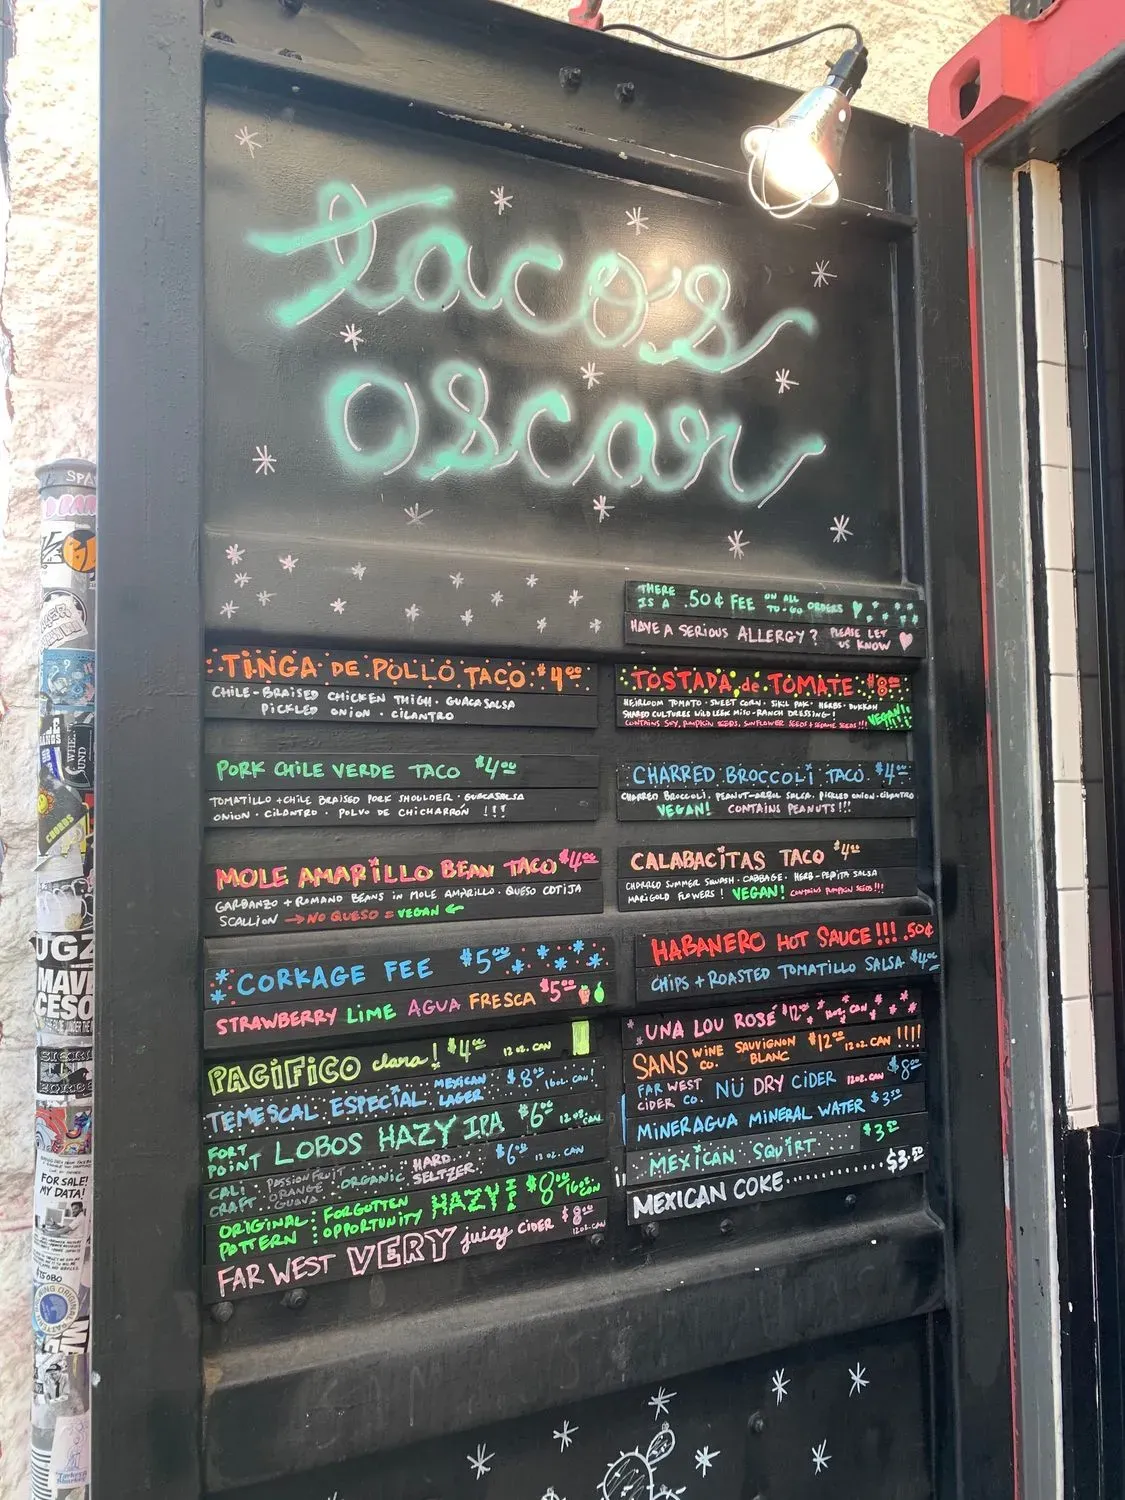 taco's
oscar
THERE IS A .50¢ FEE ON ALL TO-GO ORDERS
HAVE A SERIOUS ALLERGY? PLEASE LET US KNOW
TINGA DE POLLO TACO $4.00
CHILE-BRAISED CHICKEN THIGH · GUACASALSA
PICKLED ONION · CILANTRO
PORK CHILE VERDE TACO $4.00
TOMATILLO + CHILE BRAISED PORK SHOULDER · GUACASALSA
ONION · CILANTRO · POLVO DE CHICHARRÓN !!!
MOLE AMARILLO BEAN TACO $4.00
GARBANZO + ROMANO BEANS IN MOLE AMARILLO · QUESO COTIJA
SCALLION → NO QUESO = VEGAN ←
TOSTADA de TOMATE $8.00
HEIRLOOM TOMATO · SWEET CORN · SIKIL PAK · HERBS · DUKKAH
SHARED CULTURES WILD LEEK MISO-RANCH DRESSING! VEGAN!
CONTAINS SOY, PUMPKIN SEEDS, SUNFLOWER SEEDS + SESAME SEEDS!!!
CHARRED BROCCOLI TACO $4.00
CHARRED BROCCOLI, PEANUT-ARBOL SALSA, PICKLED ONION · CILANTRO
VEGAN! CONTAINS PEANUTS!!!
CALABACITAS TACO $4.00
CHARRED SUMMER SQUASH · CABBAGE · HERB-PEPITA SALSA
MARIGOLD FLOWERS! VEGAN! CONTAINS PUMPKIN SEEDS!!!
CORKAGE FEE $5.00
STRAWBERRY LIME AGUA FRESCA $5.00
HABANERO HOT SAUCE!!! .50¢
CHIPS + ROASTED TOMATILLO SALSA $4.00
PACIFICO clara! $4.00 12 OZ. CAN
TEMESCAL ESPECIAL MEXICAN LAGER $8.00 16 OZ. CAN!
FORT POINT LOBOS HAZY IPA $6.00 12 OZ. CAN
CALI CRAFT PASSION FRUIT ORANGE GUAVA ORGANIC HARD SELTZER $6.00 12 OZ. CAN
ORIGINAL PATTERN FORGOTTEN OPPORTUNITY HAZY IPA $8.00 16 OZ CAN
FAR WEST VERY juicy CIDER $8.00 12 OZ. CAN
UNA LOU ROSÉ $12.00 CAN
SANS WINE CO. SAUVIGNON BLANC $12.00 12 OZ. CAN !!!!
FAR WEST CIDER CO. NÜ DRY CIDER 12 OZ. CAN $8.00
MINERAGUA MINERAL WATER $3.50
MEXICAN SQUIRT $3.50
MEXICAN COKE........$3.50
FOR SALE!
MY DATA!